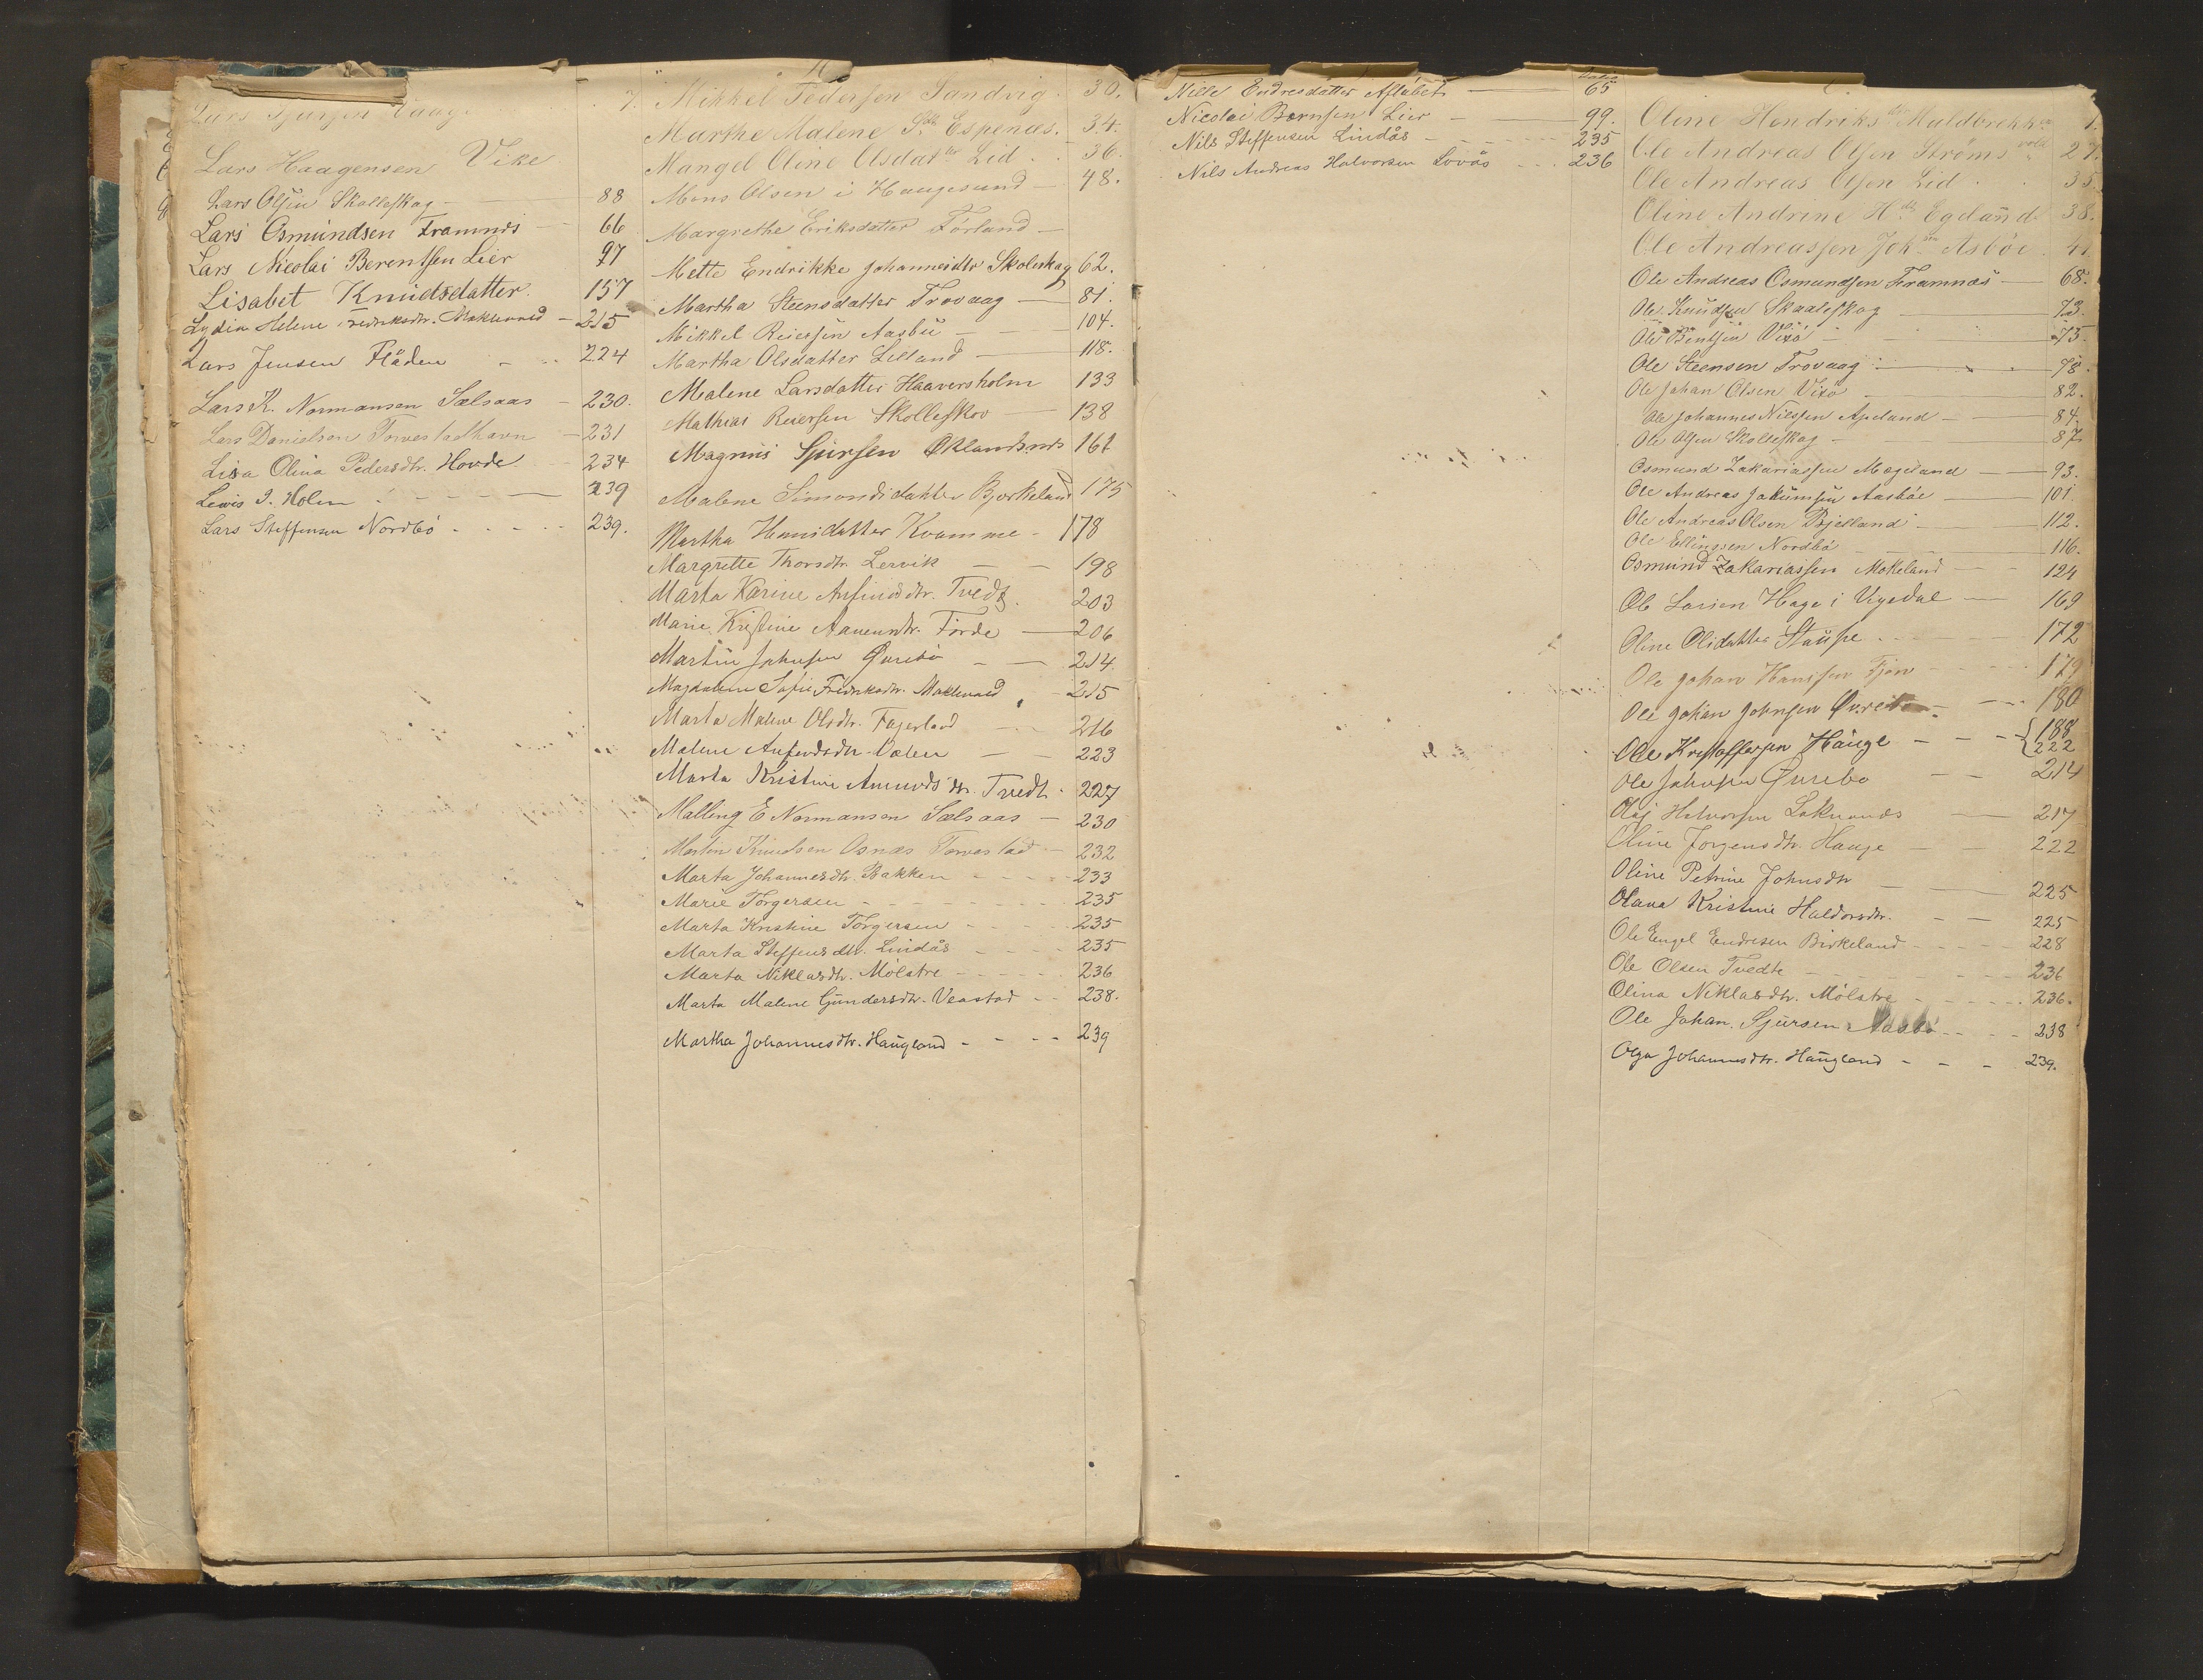 Lars Vaag 7.
Lars Haagensen Vike
Lars Olsen Skolleskog 88
Lars Osmundsen Framnes 66
Lars Nicolai Berentsen Lier 97
Lisabet Knudsdatter. 157
Lydia Helene Fredriksdtr. 215
Lars Jensen Fläden 224
Lars K. Normansen Sælsaas 230.
Lars Danielsen Torvestadhavn 231
Lisa Olina Pedersdtr. Hovde 234
Lewis I. Holm 239
Lars Steffensen Nordbö 239.
Mikkel Pedersen Sandvig 30.
Marthe Malene Espenæs. 34.
Mangel Oline Olsdatter Lid 36.
Mons Olsen i Haugesund 48.
Margrethe Eriksdatter Förland
Mette Endrikke Johannesdtr Skoleskag 62.
Martha Steensdatter Trovaag 81.
Mikkel Reiersen Aasbü 104.
Martha Olsdatter Lilland 118.
Malene Larsdatter Haaversholm 133
Mathias Reiersen Skolleskov 138
Magnus Sjursen 161
Malene Simonsdatter Bjorkeland 175
Martha Hansdatter Kvamme 178
Margrette Thorsdtr. Lervik 198
Marta Karine Tvedt. 203
Marie Kristine Förde 206
Martin Johnsen 214.
Magdalene Sofie Fredriksdtr. 215
Marta Malene Olsdtr. Fagerland 216
Malene 223
Marta Kristine Tvedt 227
Malling E Normansen Sælsaas 230
Martin Knudsen Osnæs Torvestad 232
Marta Johannesdtr. Bakken 233
Marie Torgersen 235
Marta Kristine Torgersen 235
Marta Steffensdtr. Lindås 235
Marta Niklasdtr. Mölstre 236
Marta Malene Gundersdtr. Veastad 238.
Martha Johannesdtr. Haugland 239
Nille Endresdatter 65
Nicolai Bernsen Lier 99.
Nils Steffensen Lindås 235
Nils Andreas Halvorsen Lovås 236
Oline Hendriksdtr Muldbrekke 1.
Ole Andreas Olsen Strömsvold 27.
Ole Andreas Olsen Lid 35.
Oline Andrine Hdtr Egeland 38.
Ole Andreassen Asböe 41.
Ole Andreas Osmundsen Framnæs 68.
Ole Knudsen Skaaleskog 72.
Ole Bentsen Vixö 75.
Ole Steensen Trovaag 78.
Ole Johan Olsen Vixö 82.
Ole Johannes Nilssen Apeland 84.
Ole Olsen Skolleskog 87
Osmund Zakariassen Mageland 93.
Ole Andreas Jakümsen Aasböe 101.
Ole Andreas Olsen Bjelland 112.
Ole Ellingsen Nordbö 116.
Osmünd Zakariassen Mokeland 124
Ole Larsen Hage i Vigsdal 169
Oline Olsdatter Stüpe 172
Ole Johan Hansen 179
Ole Johan Johnsen 180
Ole Kristoffersen Hauge 188 222
Ole Johnsen 214
Olaj Halvorsen 217
Oline Jorgensdtr. Hauge 222
Oline Petrine Johnsdtr 225
Olava Kristine Haldorsdtr. 225
Ole Engel Endresen Birkeland 228
Ole Olsen Tvedte 236
Olina Niklasdtr. Mölstre 236.
Ole Johan Sjursen 238
Olga Johannesdtr. Haugland 239.